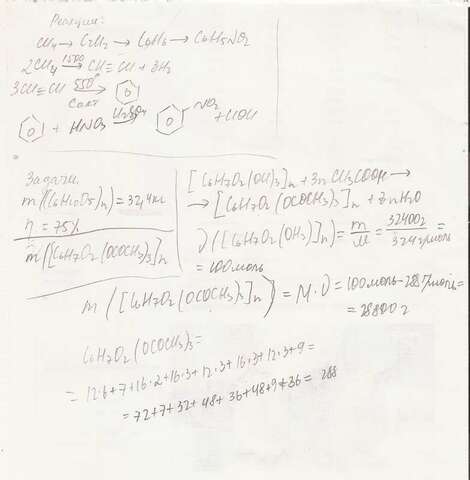 Реакции:
CH4 → C2H2 → C6H6 → C6H5NO2
2CH4 1500 → CH≡CH + 3H2
3CH≡CH 550° Cакт →
+ HNO3 H2SO4 → NO2 +
Задачи.
m((C6H10O5)n) = 32,4 кг
η = 75%
m([C6H7O2(OCOCH3)3]n
[C6H7O2(OH)3]n + 3n CH3COOH →
→ [C6H7O2(OCOCH3)3]n +
ν([C6H7O2(OH)3]n) = m/M = 32400г/324г/моль =
= 100моль
m([C6H7O2(OCOCH3)3]n) = M·ν = 100моль · 288г/моль =
= 28800г
C6H7O2(OCOCH3)3 =
= 12·6+7+16·2+16·3+12·3+16·3+12·3+9 =
= 72+7+32+48+36+48+9+36 = 288